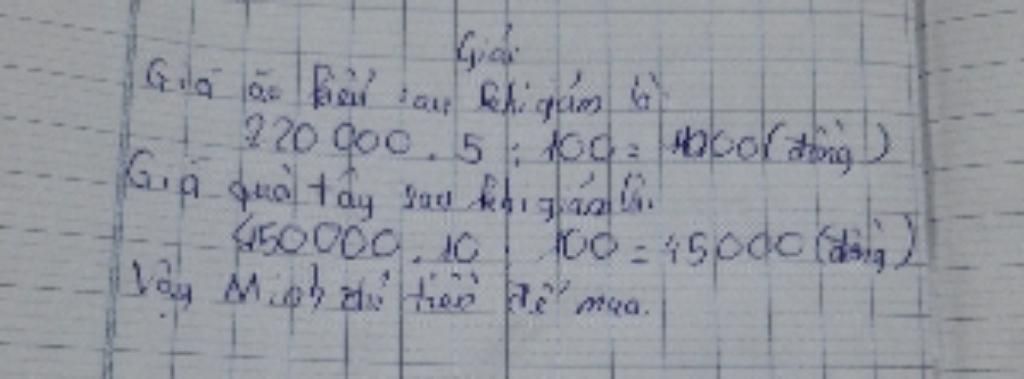 Giải
Giá áo kiểu sau khi giảm là
220 000 . 5 : 100 = (đồng)
Giá quần tây sau khi giảm là.
450 000 . 10 : 100 = 45000 (đồng)
Vậy Minh đủ tiền để mua.